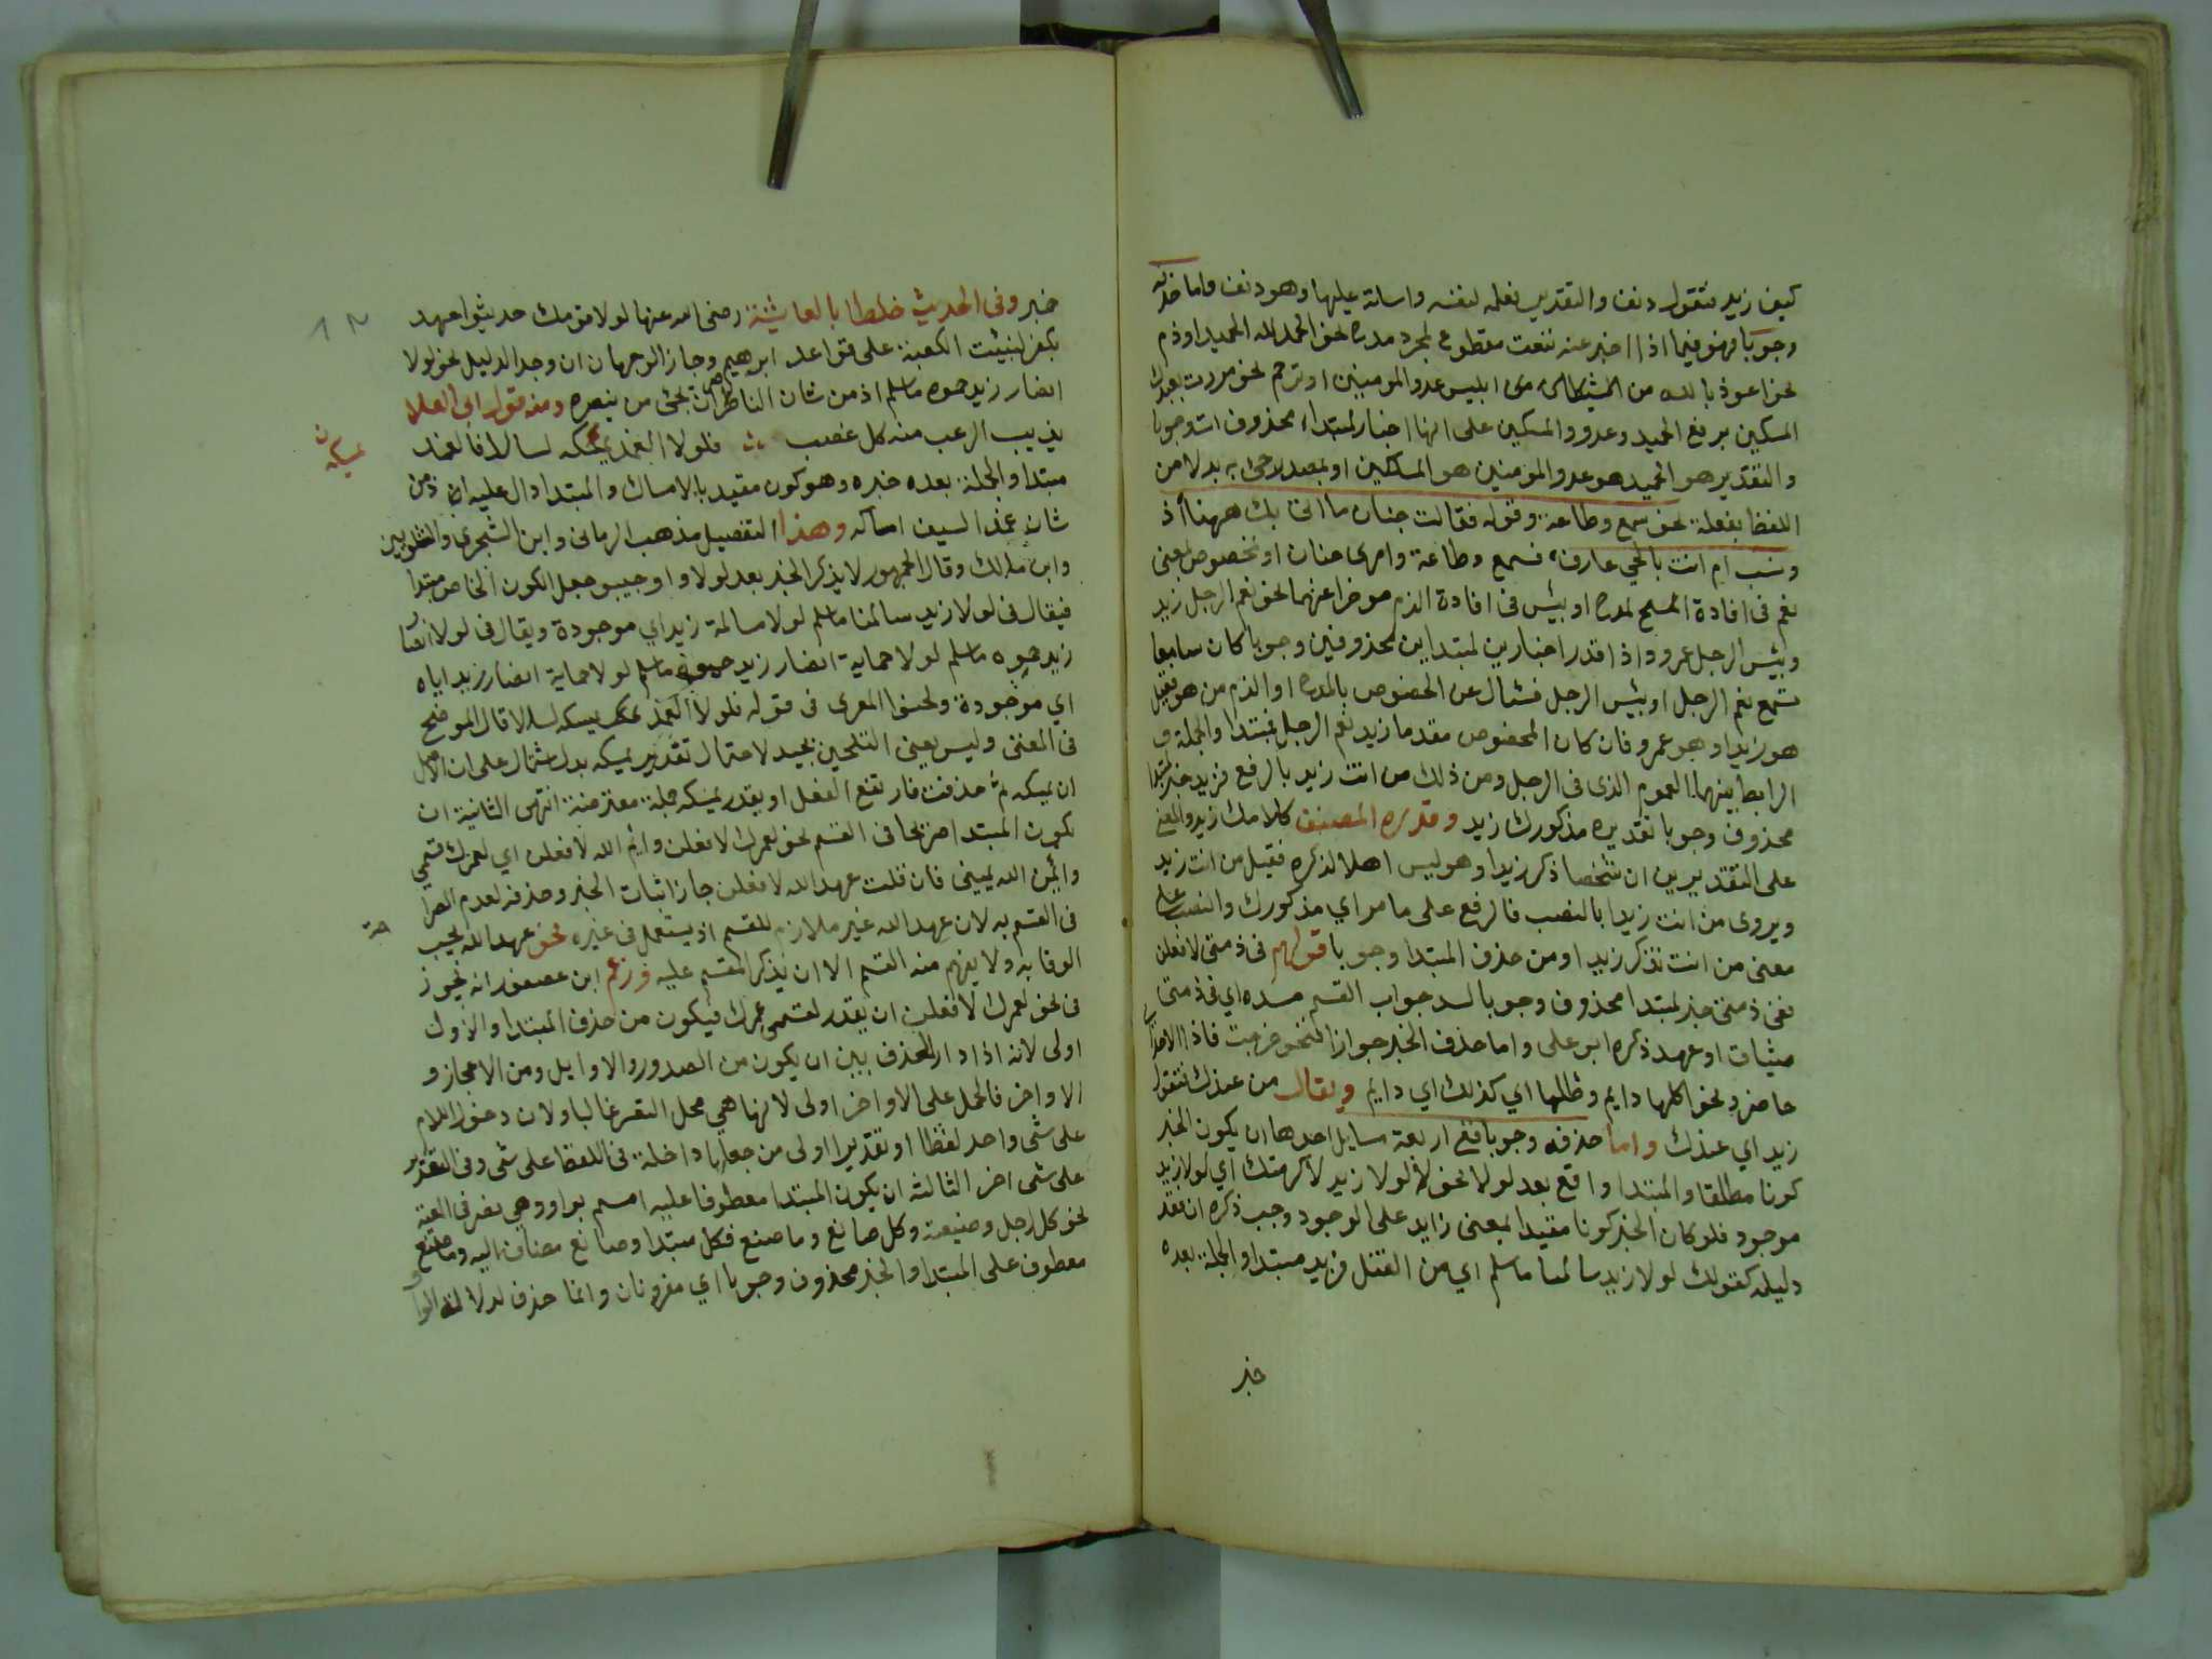 كيف زيد فتقول دنف والتقدير نعله لنفسه واساتة عليها وهو دنف واما حذفه
وجوبا فهو فيما اذا اخبر عنه بنعت مقطوع لمجرد مدح نحو الحمد لله الحميد او ذم
نحو اعوذ بالله من ابليس عدو المومنين او ترحم نحو مررت بعبدك
المسكين برفع الحميد وعدو والمسكين على انها اخبار لمبتداء محذوف وجوبا
والتقدير هو الحميد هو عدو المومنين هو المسكين او بمصدر جئ به بدلا من
اللفظ بفعله نحو سمع وطاعة وقوله فقالت حنان ما اتى بك ههنا أذ
ونسب ام انت بالحي عارف فسمع وطاعة وامرى حنان او بخصوص بمعنى
نعم فى افادة المدح او بئس فى افادة الذم موخرا عنهما نحو نعم الرجل زيد
وبئس الرجل عمرو واذا قدر اخبارين لمبتداين محذوفين وجوبا كان سامعا
سمع نعم الرجل او بئس الرجل فسال عن المخصوص بالمدح او الذم من هو فقيل
هو زيد او هو عمرو فان كان المخصوص مقدما زيد نعم الرجل فمبتدا والجملة و
الرابط بينهما العموم الذى فى الرجل ومن ذلك من انت زيد بالرفع فزيد خبر لمبتدا
محذوف وجوبا تقديره مذكورك زيد وقدره المصنف كلامك زيد والمعنى
على التقديرين ان شخصا ذكر زيدا وهو ليس اهلا لذكره فقيل من انت زيد
ويروى من انت زيدا بالنصب فالرفع على ما مر اي مذكورك والنصب على
معنى من انت تذكر زيدا ومن حذف المبتدا وجوبا قولهم فى ذمتى لافعلن
ففى ذمتى خبر لمبتدا محذوف وجوبا لسد جواب القسم مسده اي فى ذمتى
ميثاق او عهد ذكره ابو على واما حذف الخبر جوازا فنحو خرجت فاذا الاسد
حاضر ونحو اكلها دايم وظلها اي كذلك اي دايم ويقال من عندك فتقول
زيد اي عندك واما حذفه وجوبا ففى اربعة مسايل احدها ان يكون الخبر
كونا مطلقا والمبتدا واقع بعد لولا نحو لولا زيد لاكرمتك اي لولا زيد
موجود فلو كان الخبر كونا مقيدا بمعنى زايد على الوجود وجب ذكره ان فقد
دليله كقولك لولا زيد سالمنا ما سلم اي من القتل فزيد مبتدا والجملة بعده
خبر
خبر وفى الحديث خطابا لعايشة رضى الله عنها لولا قومك حديثوا عهد
بكفر لبنيت الكعبة على قواعد ابرهيم وجاز الوجهان ان وجد الدليل نحو لولا
انصار زيد حموه ما سلم اذ من شان الناصر ان يحمى من ينصره ومنه قول ابى العلا
يذيب الرعب منه كل عضب فلولا الغمد يمسكه لسالا فالغمد
يمسكه
مبتدا والجملة بعده خبره وهو كون مقيد بالامساك والمبتدا دال عليه اذ من
شان غمد السيف امساكه وهذا التفصيل مذهب الرمانى وابن الشجرى والشلوبين
وابن مالك وقال الجمهور لا يذكر الخبر بعد لولا واوجبو جعل الكون الخاص مبتدا
فيقال فى لولا زيد سالمنا ما سلم لولا مسالمة زيد اي موجودة ويقال فى لولا انصار
زيد حموه ما سلم لولا حماية انصار زيد ما سلم لولا حماية انصار زيد اياه
اي موجودة ولحنوا المعرى فى قوله فلولا الغمد يمسكه لسالا قال الموضح
فى المغنى وليس يعنى التلحين بجيد لاحتمال تقدير يمسكه بدل اشتمال على ان الاصل
ان يمسكه ثم حذفت فارتفع الفعل او يقدر يمسكه جملة معترضة انتهى الثانية ان
يكون المبتدا صريحا فى القسم نحو لعمرك لافعلن وايم الله لافعلن اي لعمرك قسمى
وايمن الله يمينى فان قلت عهد الله لافعلن جاز اثبات الخبر وحذفه لعدم الصرا
حة
فى القسم به لان عهد الله غير ملازم للقسم اذ يستعمل فى غيره نحو عهد الله يجب
الوفا به ولا يفهم منه القسم الا ان يذكر المقسم عليه وزعم ابن عصفور انه يجوز
فى نحو لعمرك لافعلن ان يقدر لقسمى عمرك فيكون من حذف المبتدا والاول
اولى لانه اذا دار الحذف بين ان يكون من الصدور والاوايل ومن الاعجاز و
الاواخر فالحمل على الاواخر اولى لانها هى محل التغير غالبا ولان دخول اللام
على شى واحد لفظا او تقديرا اولى من جعلها داخلة فى اللفظ على شى وفى التقدير
على شى اخر الثالثه ان يكون المبتدا معطوفا عليه اسم بواو وهى نص فى المعية
نحو كل رجل وضيعته وكل صانع وما صنع فكل مبتدا وصانع مضاف اليه وما صنع
معطوف على المبتدا والخبر محذوف وجوبا اي مقرونان وانما حذف لدلالة الوا
و